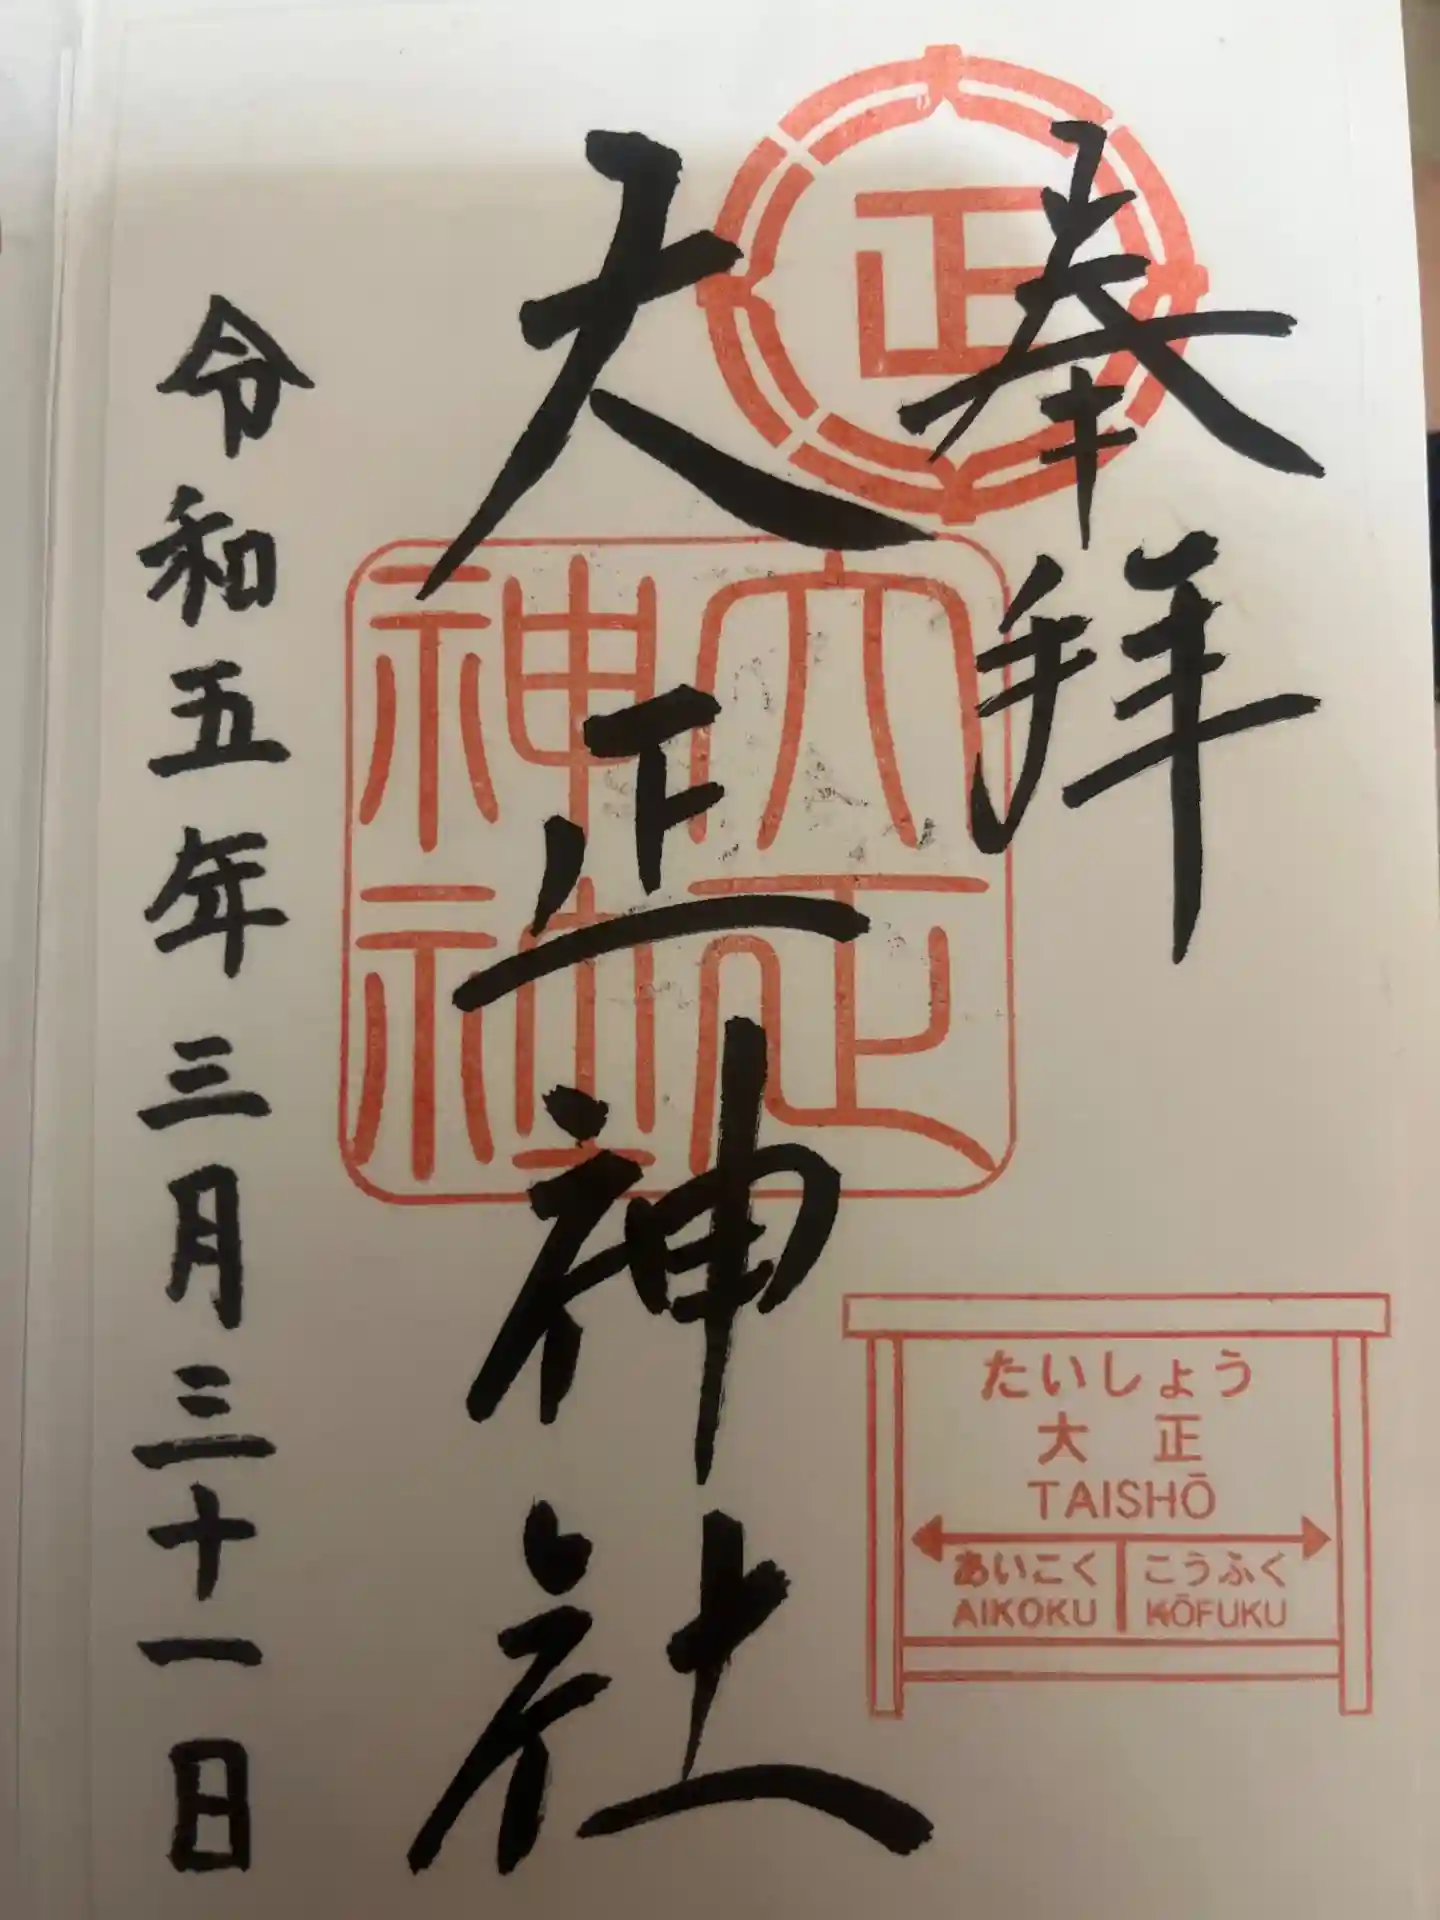 奉拝
正
大正神社
大正神社
令和五年三月三十一日
たいしょう
大正
TAISHŌ
あいこく こうふく
AIKOKU KŌFUKU